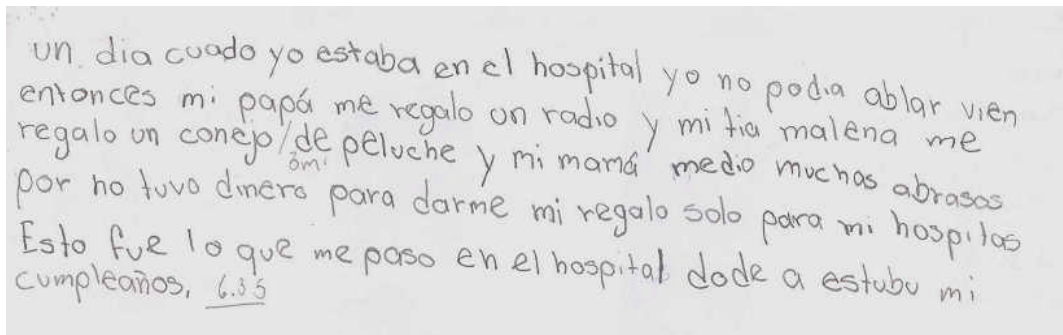 un dia cuado yo estaba en el hospital yo no podia ablar vien
entonces mi papá me regalo un radio y mi tia malena me
regalo un conejo/de peluche y mi mamá medio muchos abrasos
por no tuvo dinero para darme mi regalo solo para mi hospilas
Esto fue lo que me paso en el hospital dode a estubu mi
cumpleaños, 6.35